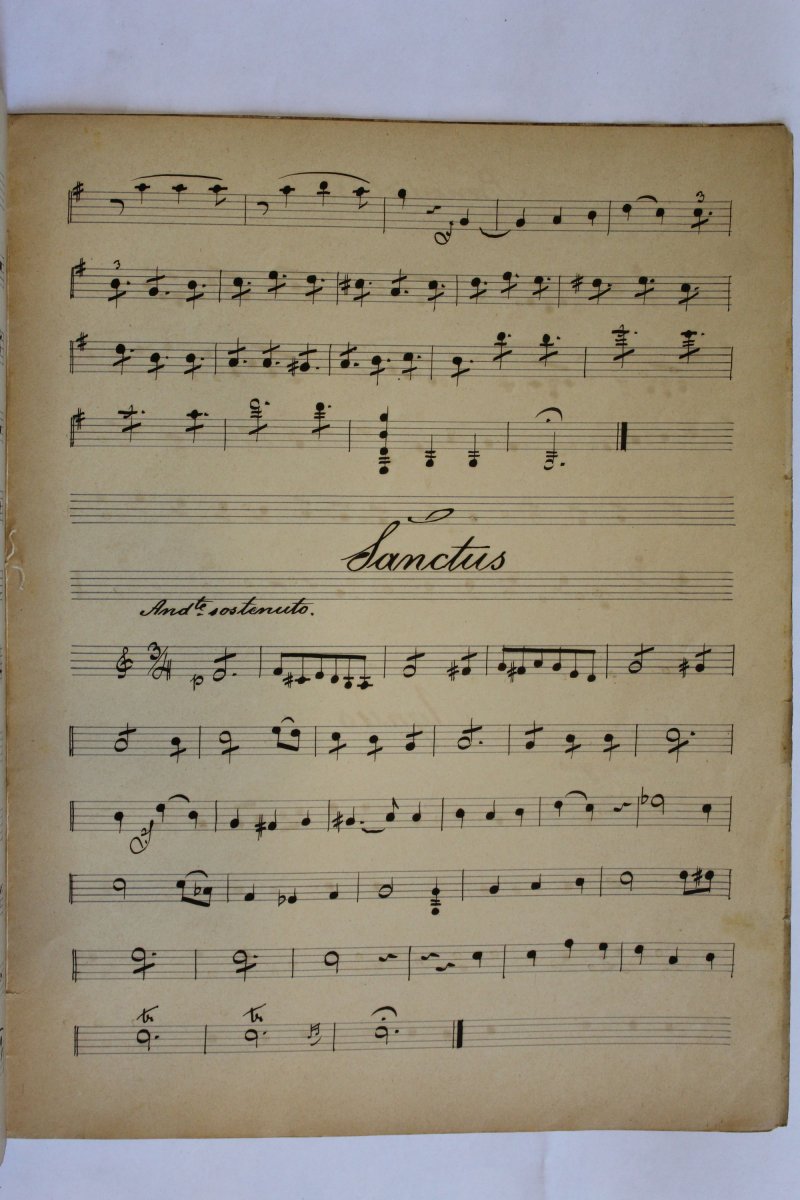 3
3
Sanctus
Andte sostenuto.
3/4 p
tr tr